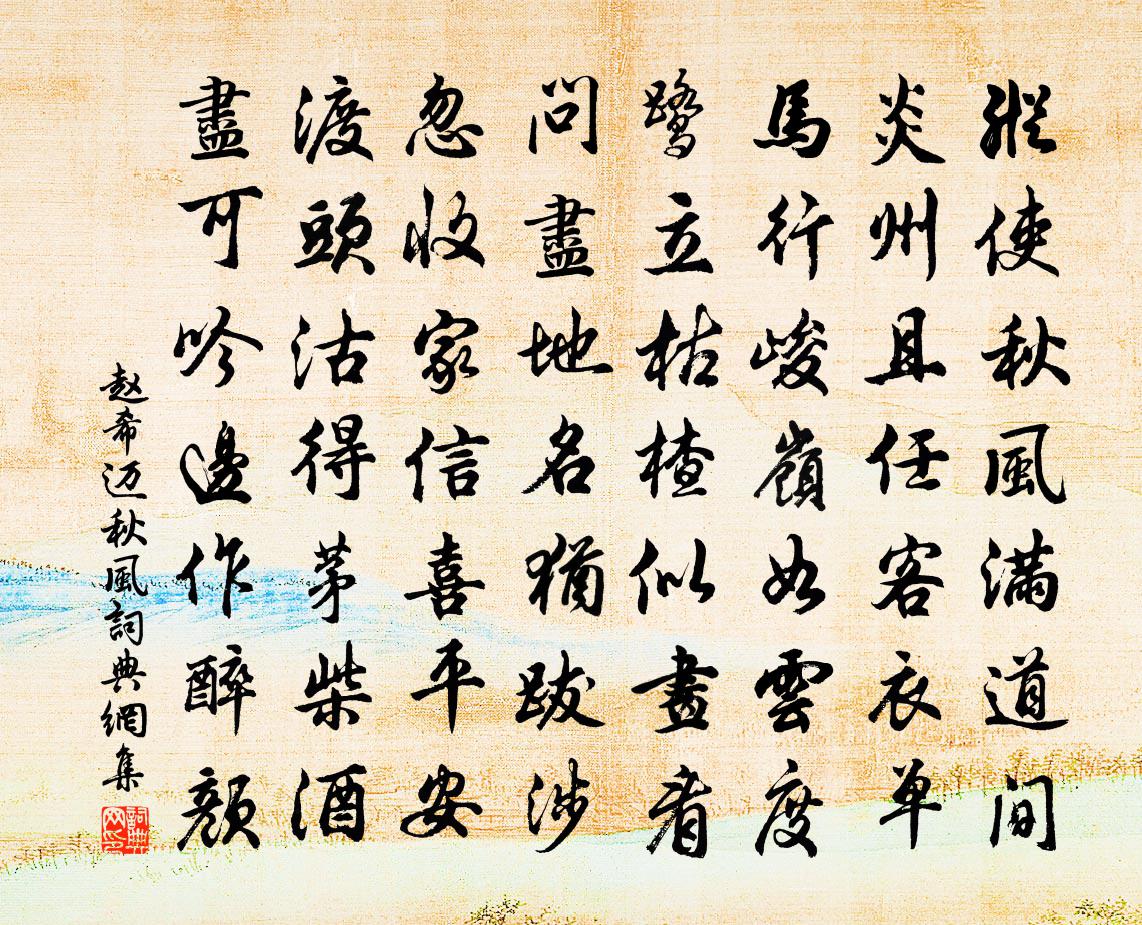 縱使秋風滿道間
炎州且任客衣单
馬行峻嶺如雲度
鷺立枯楂似畫看
問盡地名猶跋涉
忽收家信喜平安
渡頭沽得茅柴酒
盡可吟邊作醉顏
赵希迈秋風詞典網集
詞典网印